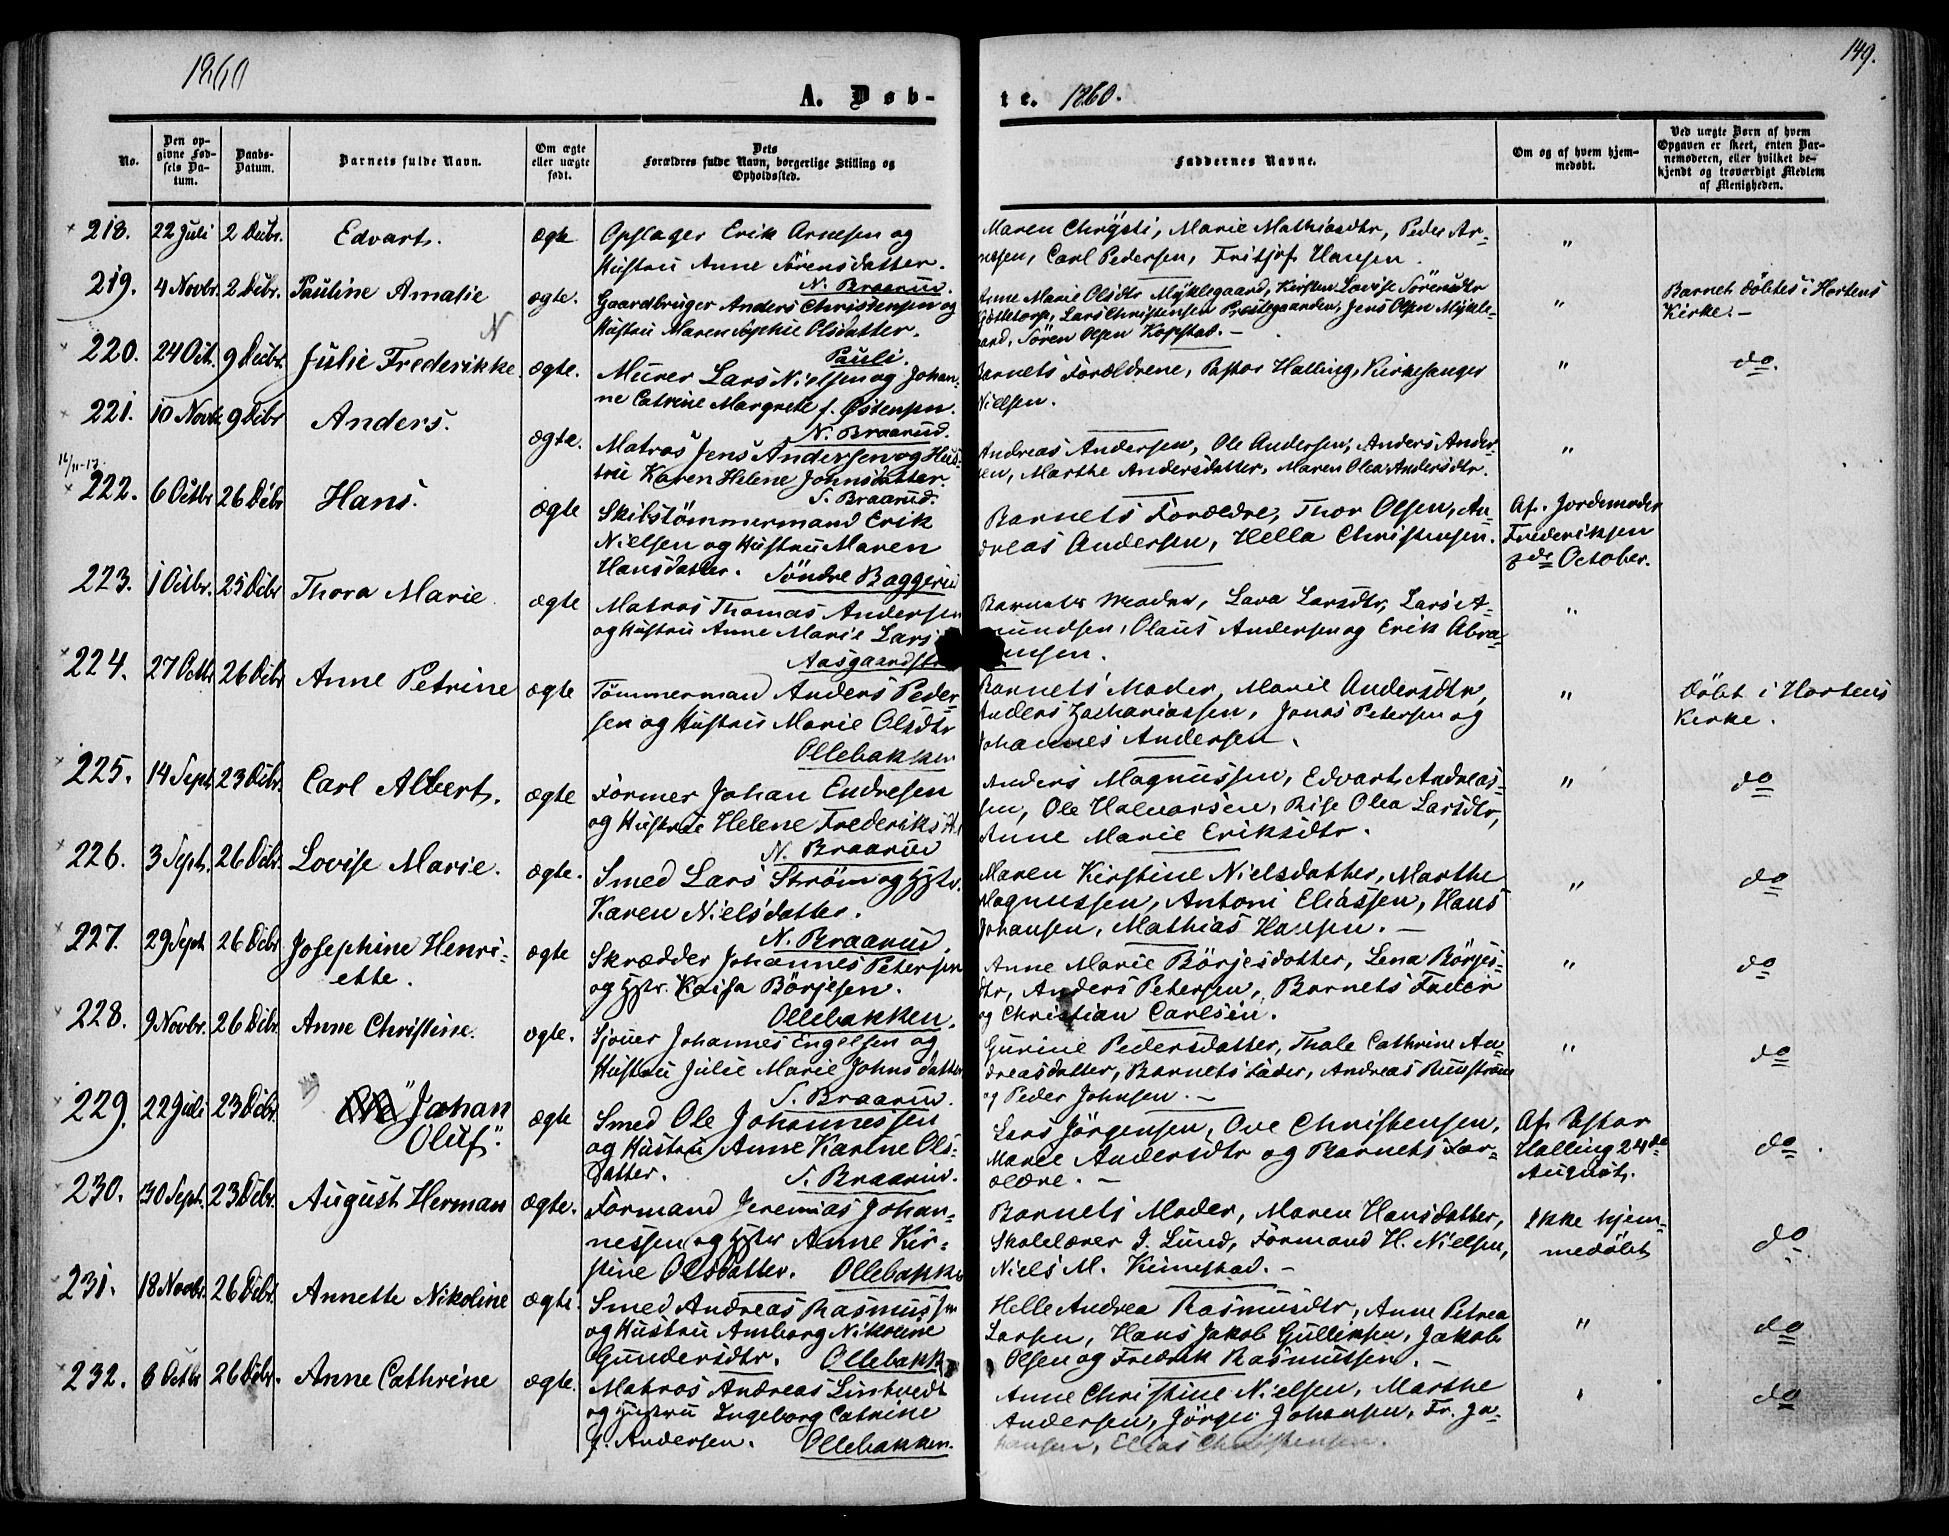 1860
149.
A. Døb-
te. 1860.
No.
Den op-
givne Fød-
sels Da-
tum.
Daabs-
Datum.
Barnets fulde Navn.
Om ægte
eller uægte
født.
Dets
Forældres fulde Navn, borgerlige Stilling og
Opholdssted.
Faddernes Navne.
Om og af hvem hjem-
medøbt.
Ved uægte Børn af hvem
Opgaven er skeet, enten Bar-
nemoderen, eller hvilket be-
kjendt og troværdigt Medlem
af Menigheden.
218. 22 Juli 2 Decbr. Edvart. ægte Opslager Erik Arnesen og
Hustru Anne Sørensdatter.
N. Braarud.
Maren Chrÿsti, Marie Mathiasdtr, Peder Ar-
nesen, Carl Pedersen, Fritjof Hansen. "
219. 4 Novbr. 2 Decbr. Pauline Amalie ægte. Gaardbruger Anders Christensen og
Hustru Maren Sophie Olsdatter.
Pauli.
Anne Marie Olsdtr Mÿklegaard, Kirsten Lovise Sörensdtr
Lars Christensen Prestegaarden, Jens Olsen Mÿkle-
gaard, Sören Olsen Kopstad. — "
Barnet døbtes i Hortens
Kirke. —
220. 24 Oct. 9 Decbr. Julie Frederikke. ægte. Murer Lars Nielsen og Johan-
ne Catrine Margrete f. Østensen.
N. Braarud.
Barnets Forældrene, Pastor Halling, Kirkesanger
Nielsen. " do.
221. 10 Novbr 9 Decbr Anders. ægte. Matros Jens Andersen og Hus-
tru Karen Helene Johnsdatter.
S. Braarud.
Andreas Andersen, Ole Andersen, Anders Ander-
sen, Marthe Andersdatter, Maren Olea Andersdtr. "
16/11-17
222. 6 Octbr 26 Decbr Hans. ægte Skibstömmermand Erik
Nielsen og Hustru Maren
Hansdatter. Söndre Baggerud
Barnets Forældre, Thor Olsen, An-
dreas Andersen, Hella Christensen.
Af. Jordemoder
Frederiksen
October.
223. 1 Octbr. 25 Decbr Thora Marie ægte Matros Thomas Andersen
og Hustru Anne Marie Lars
Aasgaardst
Barnets Moder, Lava Larsdtr, Lars A-
mundsen, Olaus Andersen og Erik Abra-
hamsen. "
224. 27 Octbr 26 Decbr Anne Petrine ægte Tömmermand Anders Peder-
sen og Hustru Marie Olsdtr
Ollebakken
Barnets Moder, Marie Andersdtr,
Anders Zachariassen, Jonas Petersen og
Johannes Andersen. "
döbt i Hortens
Kirke.
225. 14 Sept. 23 Decbr. Carl Albert. ægte Former Johan Endresen
og Hustrue Helene Frederiks
N. Braarud
Anders Magnussen, Edvart Andreas-
sen, Ole Halvorsen, Rise Olea Larsdtr,
Anne Marie Eriksdtr. " do
226. 3 Septr. 26 Decbr. Lovise Marie. ægte. Smed Lars Ström og Hstr.
Karen Nielsdatter.
N. Braarud
Maren Kirstine Nielsdatter, Marthe
Magnussen, Antoni Eliassen, Hans
Johansen, Mathias Hansen. — " do
227. 29 Sept 26 Decbr. Josephine Henri-
ette. ægte Skrædder Johannes Petersen
og Hstr. Kaisa Börjesen.
Ollebakken.
Anne Marie Börjesdatter, Lena Börjes-
dtr, Anders Petersen, Barnets Fader
og Christian Carlsen. " do
228. 9 Novbr. 26 Decbr. Anne Christine. ægte. Sjouer Johannes Engelsen og
Hustru Julie Marie Johnsdatter
S. Braarud.
Gurine Pedersdatter, Thale Cathrine An-
dreasdatter, Barnets Fader, Andreas
og Peder Johnsen. — " do
229. 22 Juli 23 Decbr. "Johan
Oluf". ægte Smed Ole Johannessen
og Hustru Anne Karine Ols-
datter. S. Braarud.
Lars Jörgensen, Ove Christensen,
Marie Andersdtr og Barnets For-
ældre. —
Af. Pastor
Halling 24de
August. do.
230. 30 Sept. 23 Decbr. August Herman ægte. Formand Jeremias Johan-
nessen og Hstr Anne Kir-
stine Olsdatter. Ollebakke
Barnets Moder, Maren Hansdatter,
Skolelærer J. Lund, Formand H. Nielsen,
Niels M. Kimstad. —
Ikke hjem-
medöbt do.
231. 18 Novbr. 26 Decbr. Annette Nikoline ægte. Smed Andreas Rasmussen
og Hustru Amborg Nikoline
Gundersdtr. Ollebakk
Helle Andrea Rasmusdtr, Anne Petrea
Larsen, Hans Jakob Gulliksen, Jakob
Olsen og Fredrik Rasmussen. — " do
232. 6 Octbr 26 Decbr. Anne Cathrine ægte. Matros Andreas Lintvedt
og Hustru Ingeborg Catrine
f. Andersen. Ollebakken.
Anne Christine Nielsen, Marthe
Andersen, Jörgen Johansen, Fr. Jo-
hansen, Elias Christensen. do